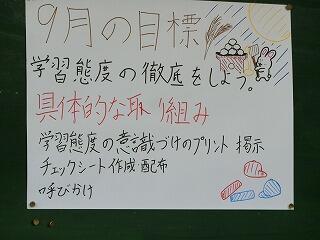 9月の目標
学習態度の徹底をしよう。
具体的な取り組み
学習態度の意識づけのプリント 掲示
チェックシート作成・配布
呼びかけ